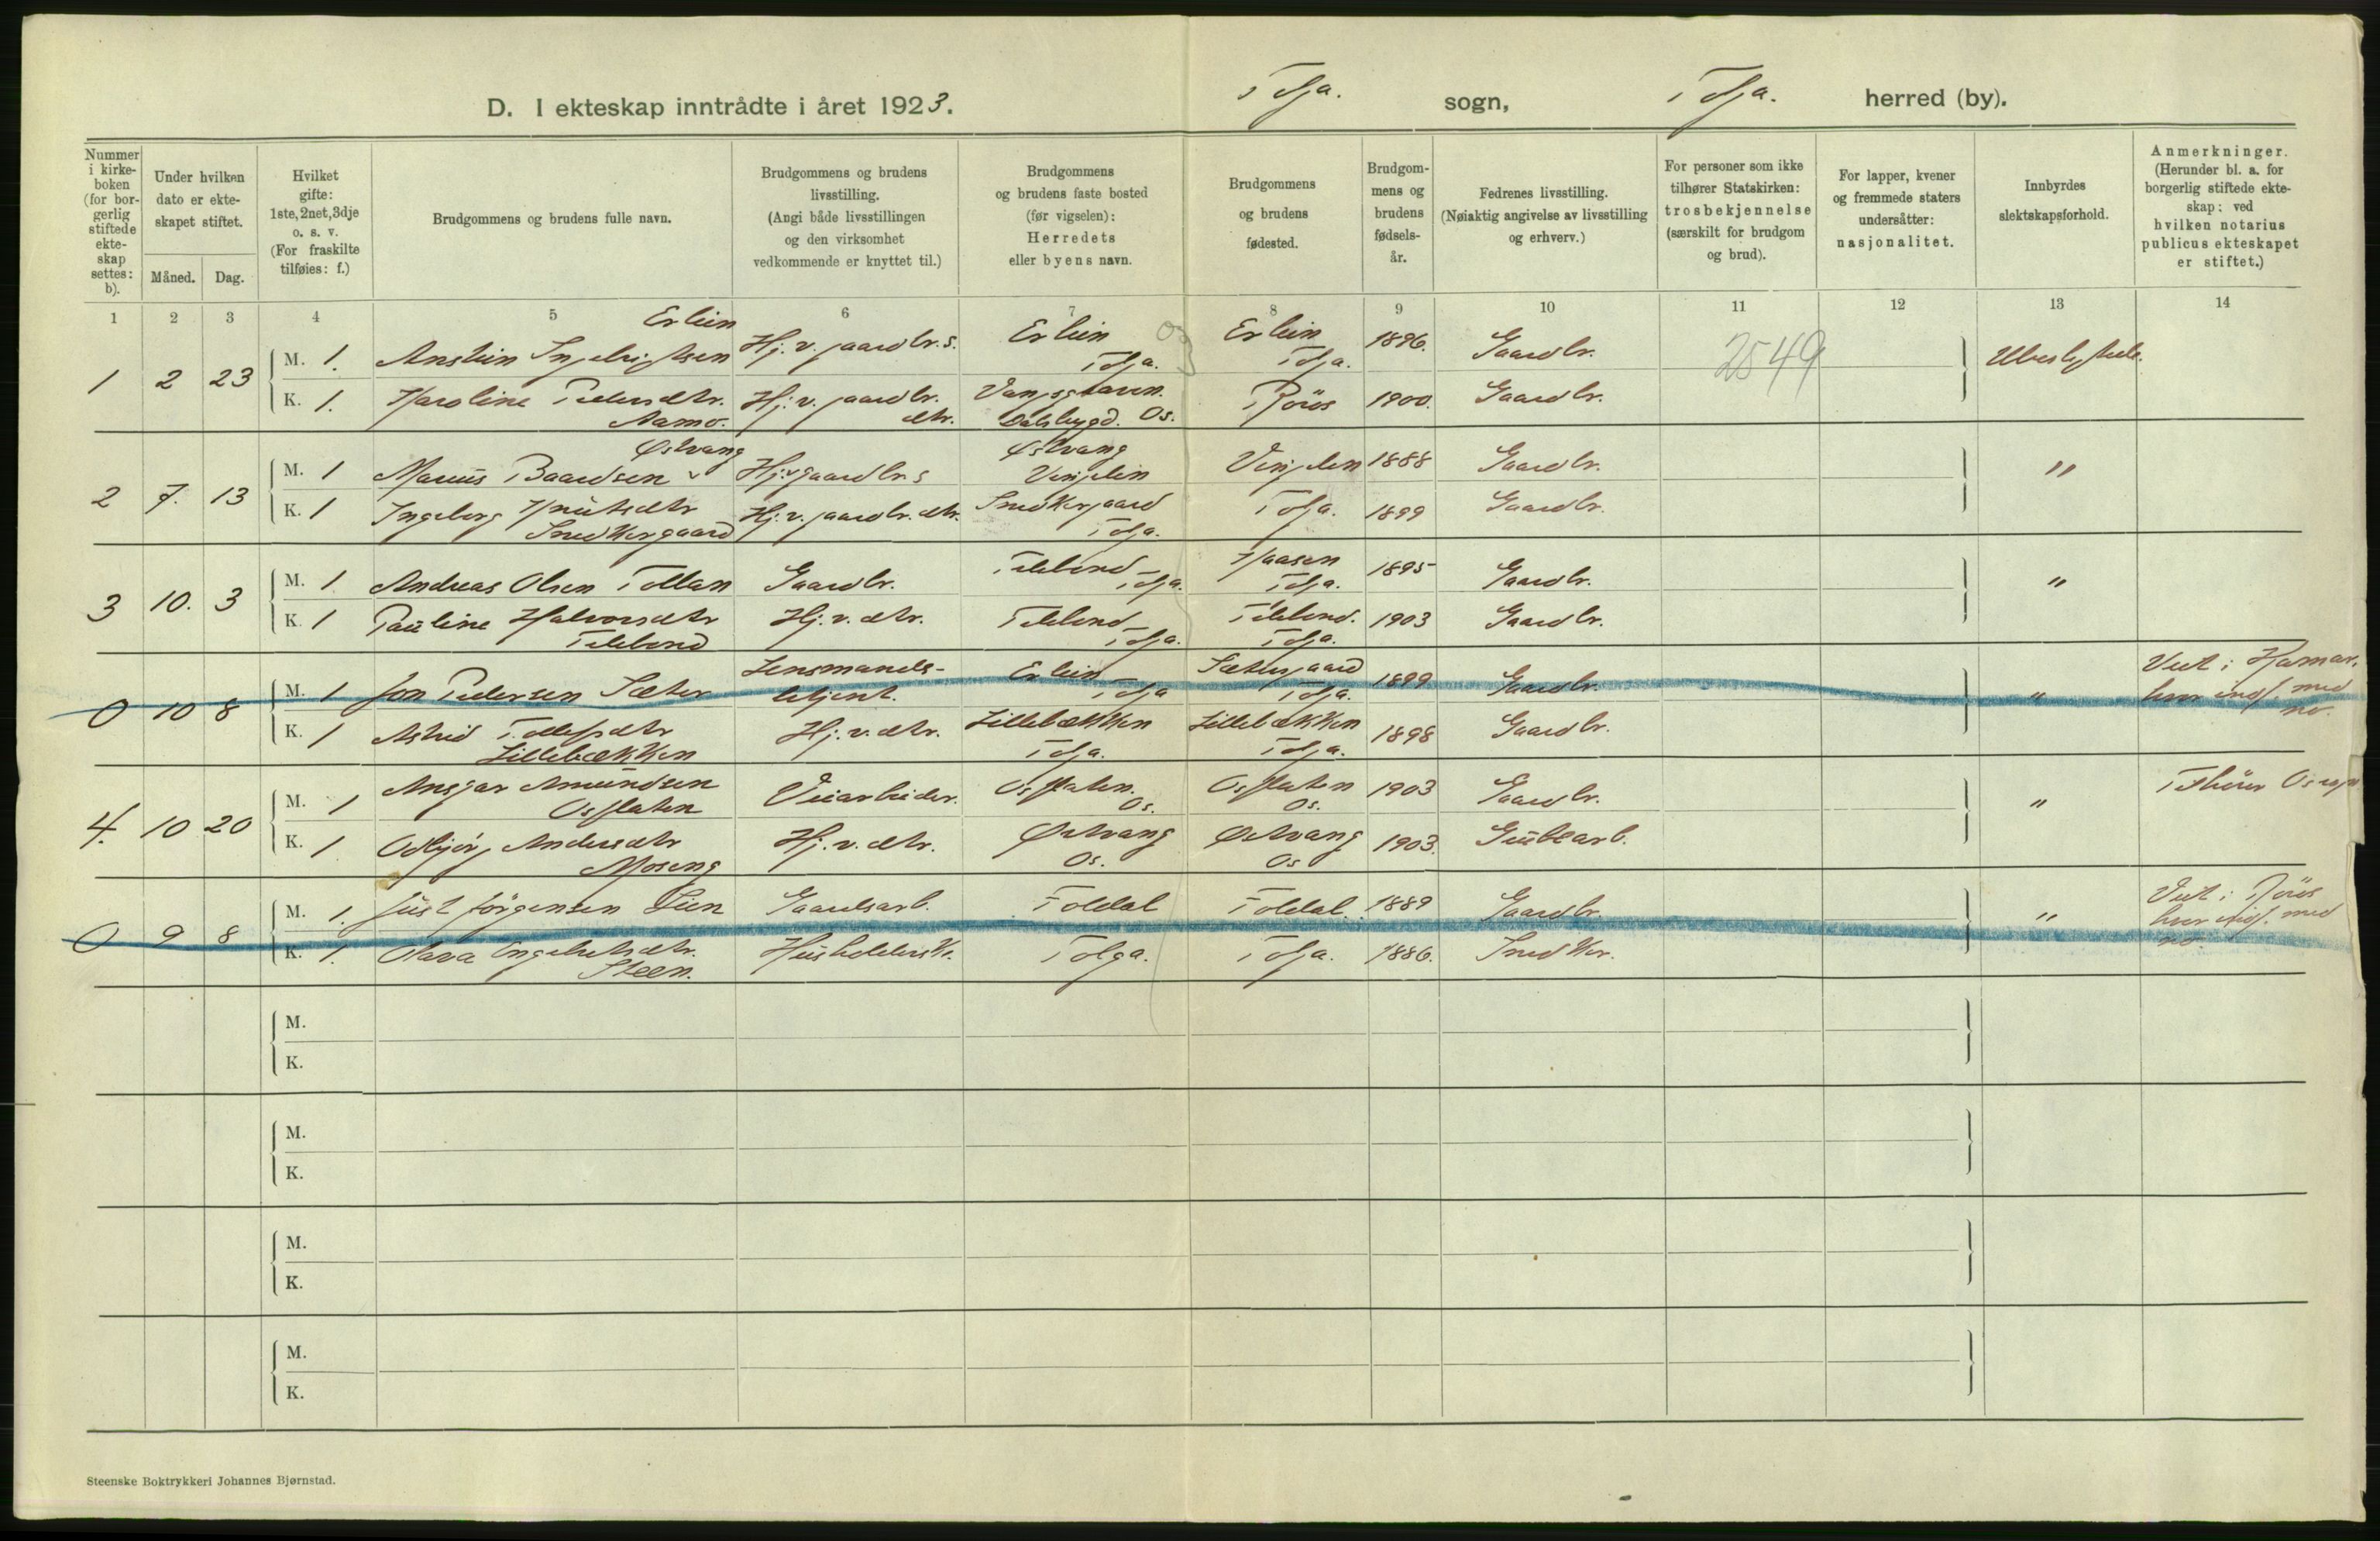 D. I ekteskap inntrådte i året 1923. Tolga. sogn, Tolga. herred (by).
Nummer i kirkeboken (for borgerlig stiftede ekteskap settes: b).
Under hvilken dato er ekteskapet stiftet.
Måned. Dag.
Hvilket gifte: 1ste, 2net, 3dje o. s. v. (For fraskilte tilføies: f.)
Brudgommens og brudens fulle navn.
Brudgommens og brudens livsstilling. (Angi både livsstillingen og den virksomhet vedkommende er knyttet til.)
Brudgommens og brudens faste bosted (før vigselen): Herredets eller byens navn.
Brudgommens og brudens fødested.
Brudgommens og brudens fødselsår.
Fedrenes livsstilling. (Nøiaktig angivelse av livsstilling og erhverv.)
For personer som ikke tilhører Statskirken: trosbekjennelse (særskilt for brudgom og brud).
For lapper, kvener og fremmede staters undersåtter: nasjonalitet.
Innbyrdes slektskapsforhold.
Anmerkninger. (Herunder bl. a. for borgerlig stiftede ekteskap: ved hvilken notarius publicus ekteskapet er stiftet.)
1 2 3 4 5 6 7 8 9 10 11 12 13 14
1 2 23
M. 1. Anstein Ingebrigtsen Erlien Hj. v. gaardbr. s. Erlien Tolga. Erlien Tolga. 1896. Gaardbr. 2549 Ubeslegtede.
K. 1. Karoline Pedersdtr. Aamo. Hj. v. gaardbr. dtr. Vangsgraven. Dalsbygd. Os. Røros 1900. Gaardbr.
2 7. 13
M. 1 Marius Baardsen Østvang Hj. v. gaardbr. s Østvang Vingelen Vingelen 1888 Gaardbr. "
K. 1 Ingeborg Knutsdtr Snedkergaard Hj. v. gaardbr. dtr. Snedkergaard Tolga. Tolga. 1899 Gaardbr.
3 10. 3
M. 1 Andreas Olsen Tollan Gaardbr. Telebond Tolga. Haasen Tolga. 1895 Gaardbr. "
K. 1 Pauline Halvorsdtr Telebond Hj. v. dtr. Telebond Tolga. Telebond. Tolga. 1903 Gaardbr.
0 10 8
M. 1 Jon Pedersen Sæter Lensmandsbetjent. Erlien Tolga Sætergaard Tolga. 1899 Gaardbr. " Viet i Hamar, hvor indf. med no.
K. 1 Astrid Tollefsdtr Lillebækken Hj. v. dtr. Lillebækken Tolga. Lillebækken Tolga. 1898 Gaardbr.
4. 10 20
M. 1 Ansgar Amundsen Osflaten Veiarbeider. Osflaten. Os. Osflaten Os. 1903 Gaardbr. "
K. 1 Oddbjørg Andersdtr Moseng Hj. v. dtr. Østvang Os. Østvang Os 1903. Grubearb.
0 9 8
M. 1. Just Jörgensen Lien Gaardsarb. Toldal Toldal. 1889 Gaardbr. " Viet i Røros hvor indf. med no.
K. 1. Olava Engebretsdtr. Steen. Husholderske. Tolga. Tolga. 1886. Snedker.
M.
K.
M.
K.
M.
K.
M.
K.
Steenske Boktrykkeri Johannes Bjørnstad.